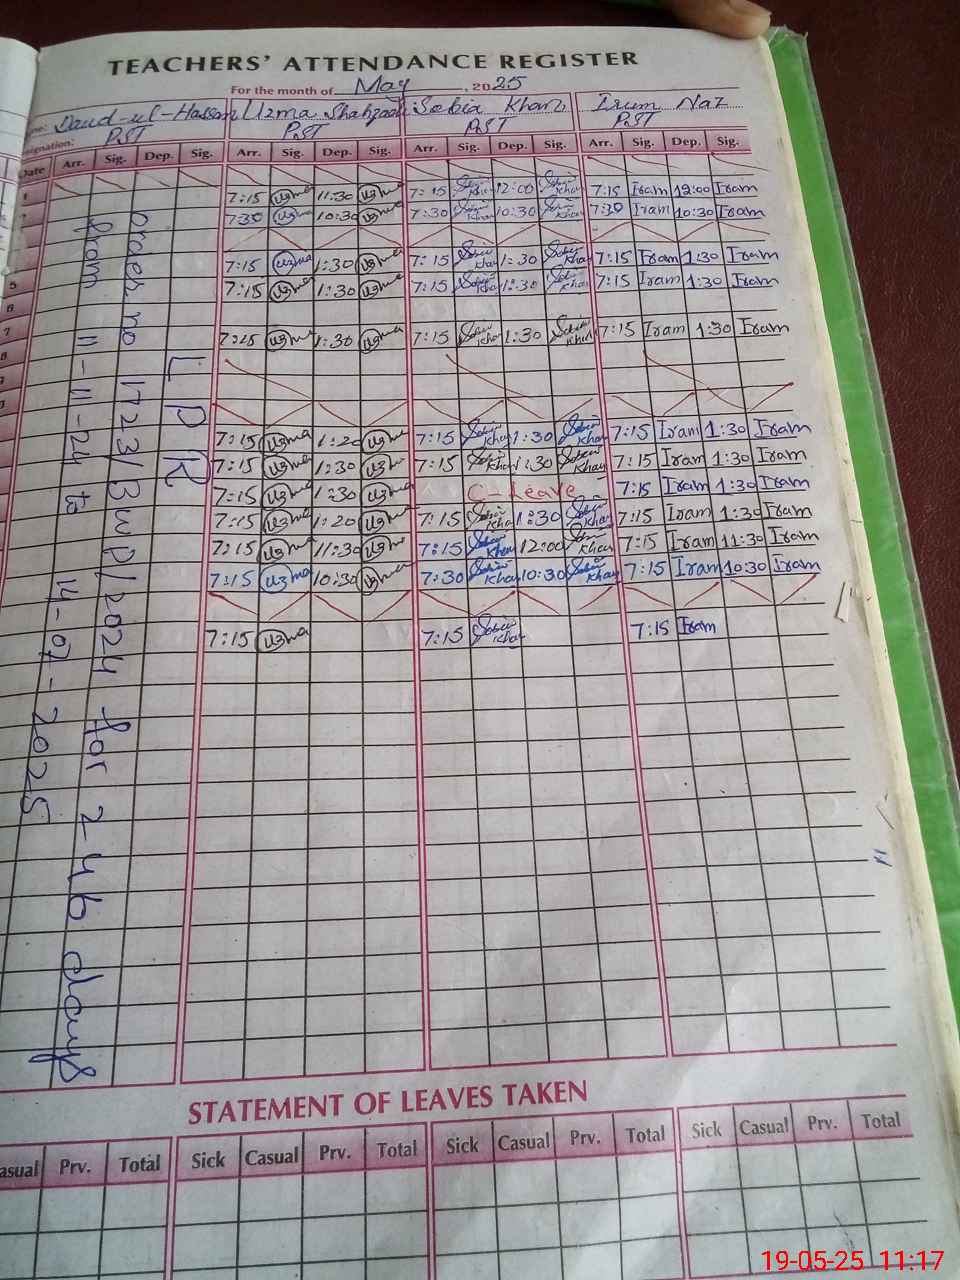 TEACHERS' ATTENDANCE REGISTER
For the month of May, 2025
Daud-ul-Hassan Uzma Shahzadi Sobia Khan Irum Naz
PST PST PST PST
Date Arr. Sig. Dep. Sig. Arr. Sig. Dep. Sig. Arr. Sig. Dep. Sig. Arr. Sig. Dep. Sig.
7:15 Uzma 11:30 Uzma 7:15 Sobia Khan 12:00 Sobia Khan 7:15 Iram 12:00 Iram
7:30 Uzma 10:30 Uzma 7:30 Sobia Khan 10:30 Sobia Khan 7:30 Iram 10:30 Iram
7:15 Uzma 1:30 Uzma 7:15 Sobia Khan 1:30 Sobia Khan 7:15 Iram 1:30 Iram
5 7:15 Uzma 1:30 Uzma 7:15 Sobia Khan 1:30 Sobia Khan 7:15 Iram 1:30 Iram
6
7 7:15 Uzma 1:30 Uzma 7:15 Sobia Khan 1:30 Sobia Khan 7:15 Iram 1:30 Iram
8
7:15 Uzma 1:20 Uzma 7:15 Sobia Khan 1:30 Sobia Khan 7:15 Iram 1:30 Iram
7:15 Uzma 1:30 Uzma 7:15 Sobia Khan 1:30 Sobia Khan 7:15 Iram 1:30 Iram
7:15 Uzma 1:30 Uzma C-Leave 7:15 Iram 1:30 Iram
7:15 Uzma 1:20 Uzma 7:15 Sobia Khan 1:30 Sobia Khan 7:15 Iram 1:30 Iram
7:15 Uzma 11:30 Uzma 7:15 Sobia Khan 12:00 Sobia Khan 7:15 Iram 11:30 Iram
7:15 Uzma 10:30 Uzma 7:30 Sobia Khan 10:30 Sobia Khan 7:15 Iram 10:30 Iram
7:15 Uzma 7:15 Sobia Khan 7:15 Iram
L P R
order no 1723/BWP/2024 for 246 days
from 11-11-24 to 14-07-2025
STATEMENT OF LEAVES TAKEN
Casual Prv. Total Sick Casual Prv. Total Sick Casual Prv. Total Sick Casual Prv. Total
19-05-25 11:17